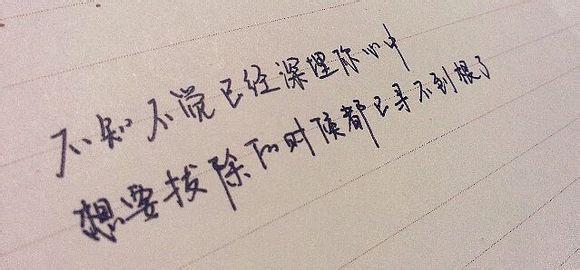 不知不觉已经深埋你心中
想要拔除的时候都已寻不到根了